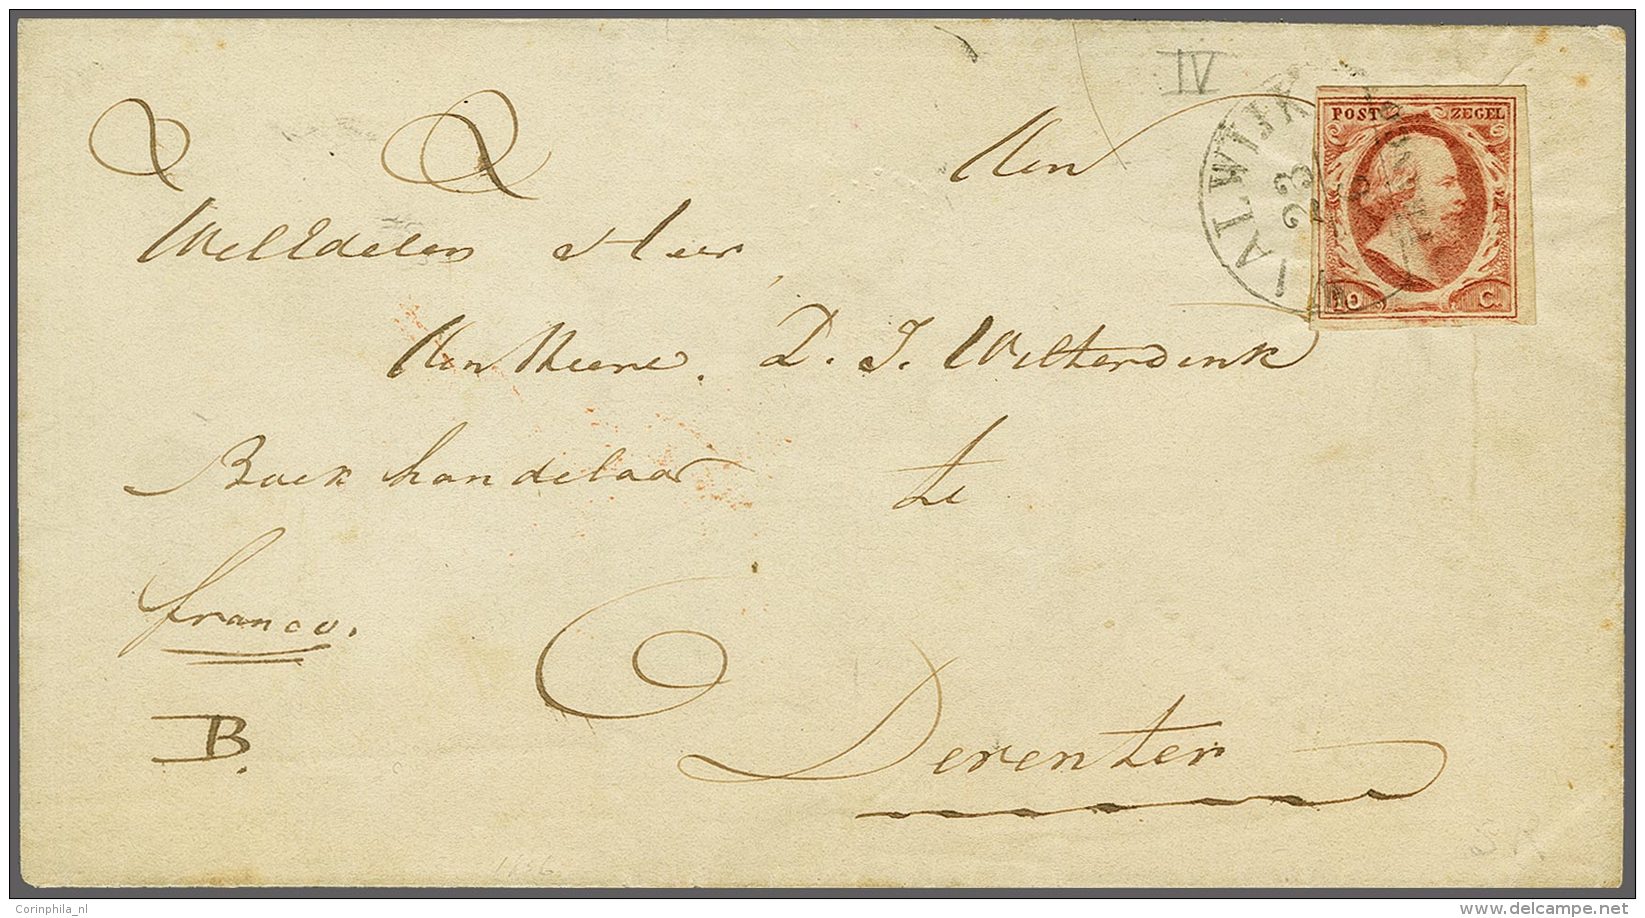 IV
Aan
WelEdelen Heer
POST ZEGEL
WAALWIJK
23
10 C.
Den Heere. D. J. Wilterdink
Boek handelaar te
franco.
Deventer
B.
1856
Corinphila_nl
www.delcampe.net